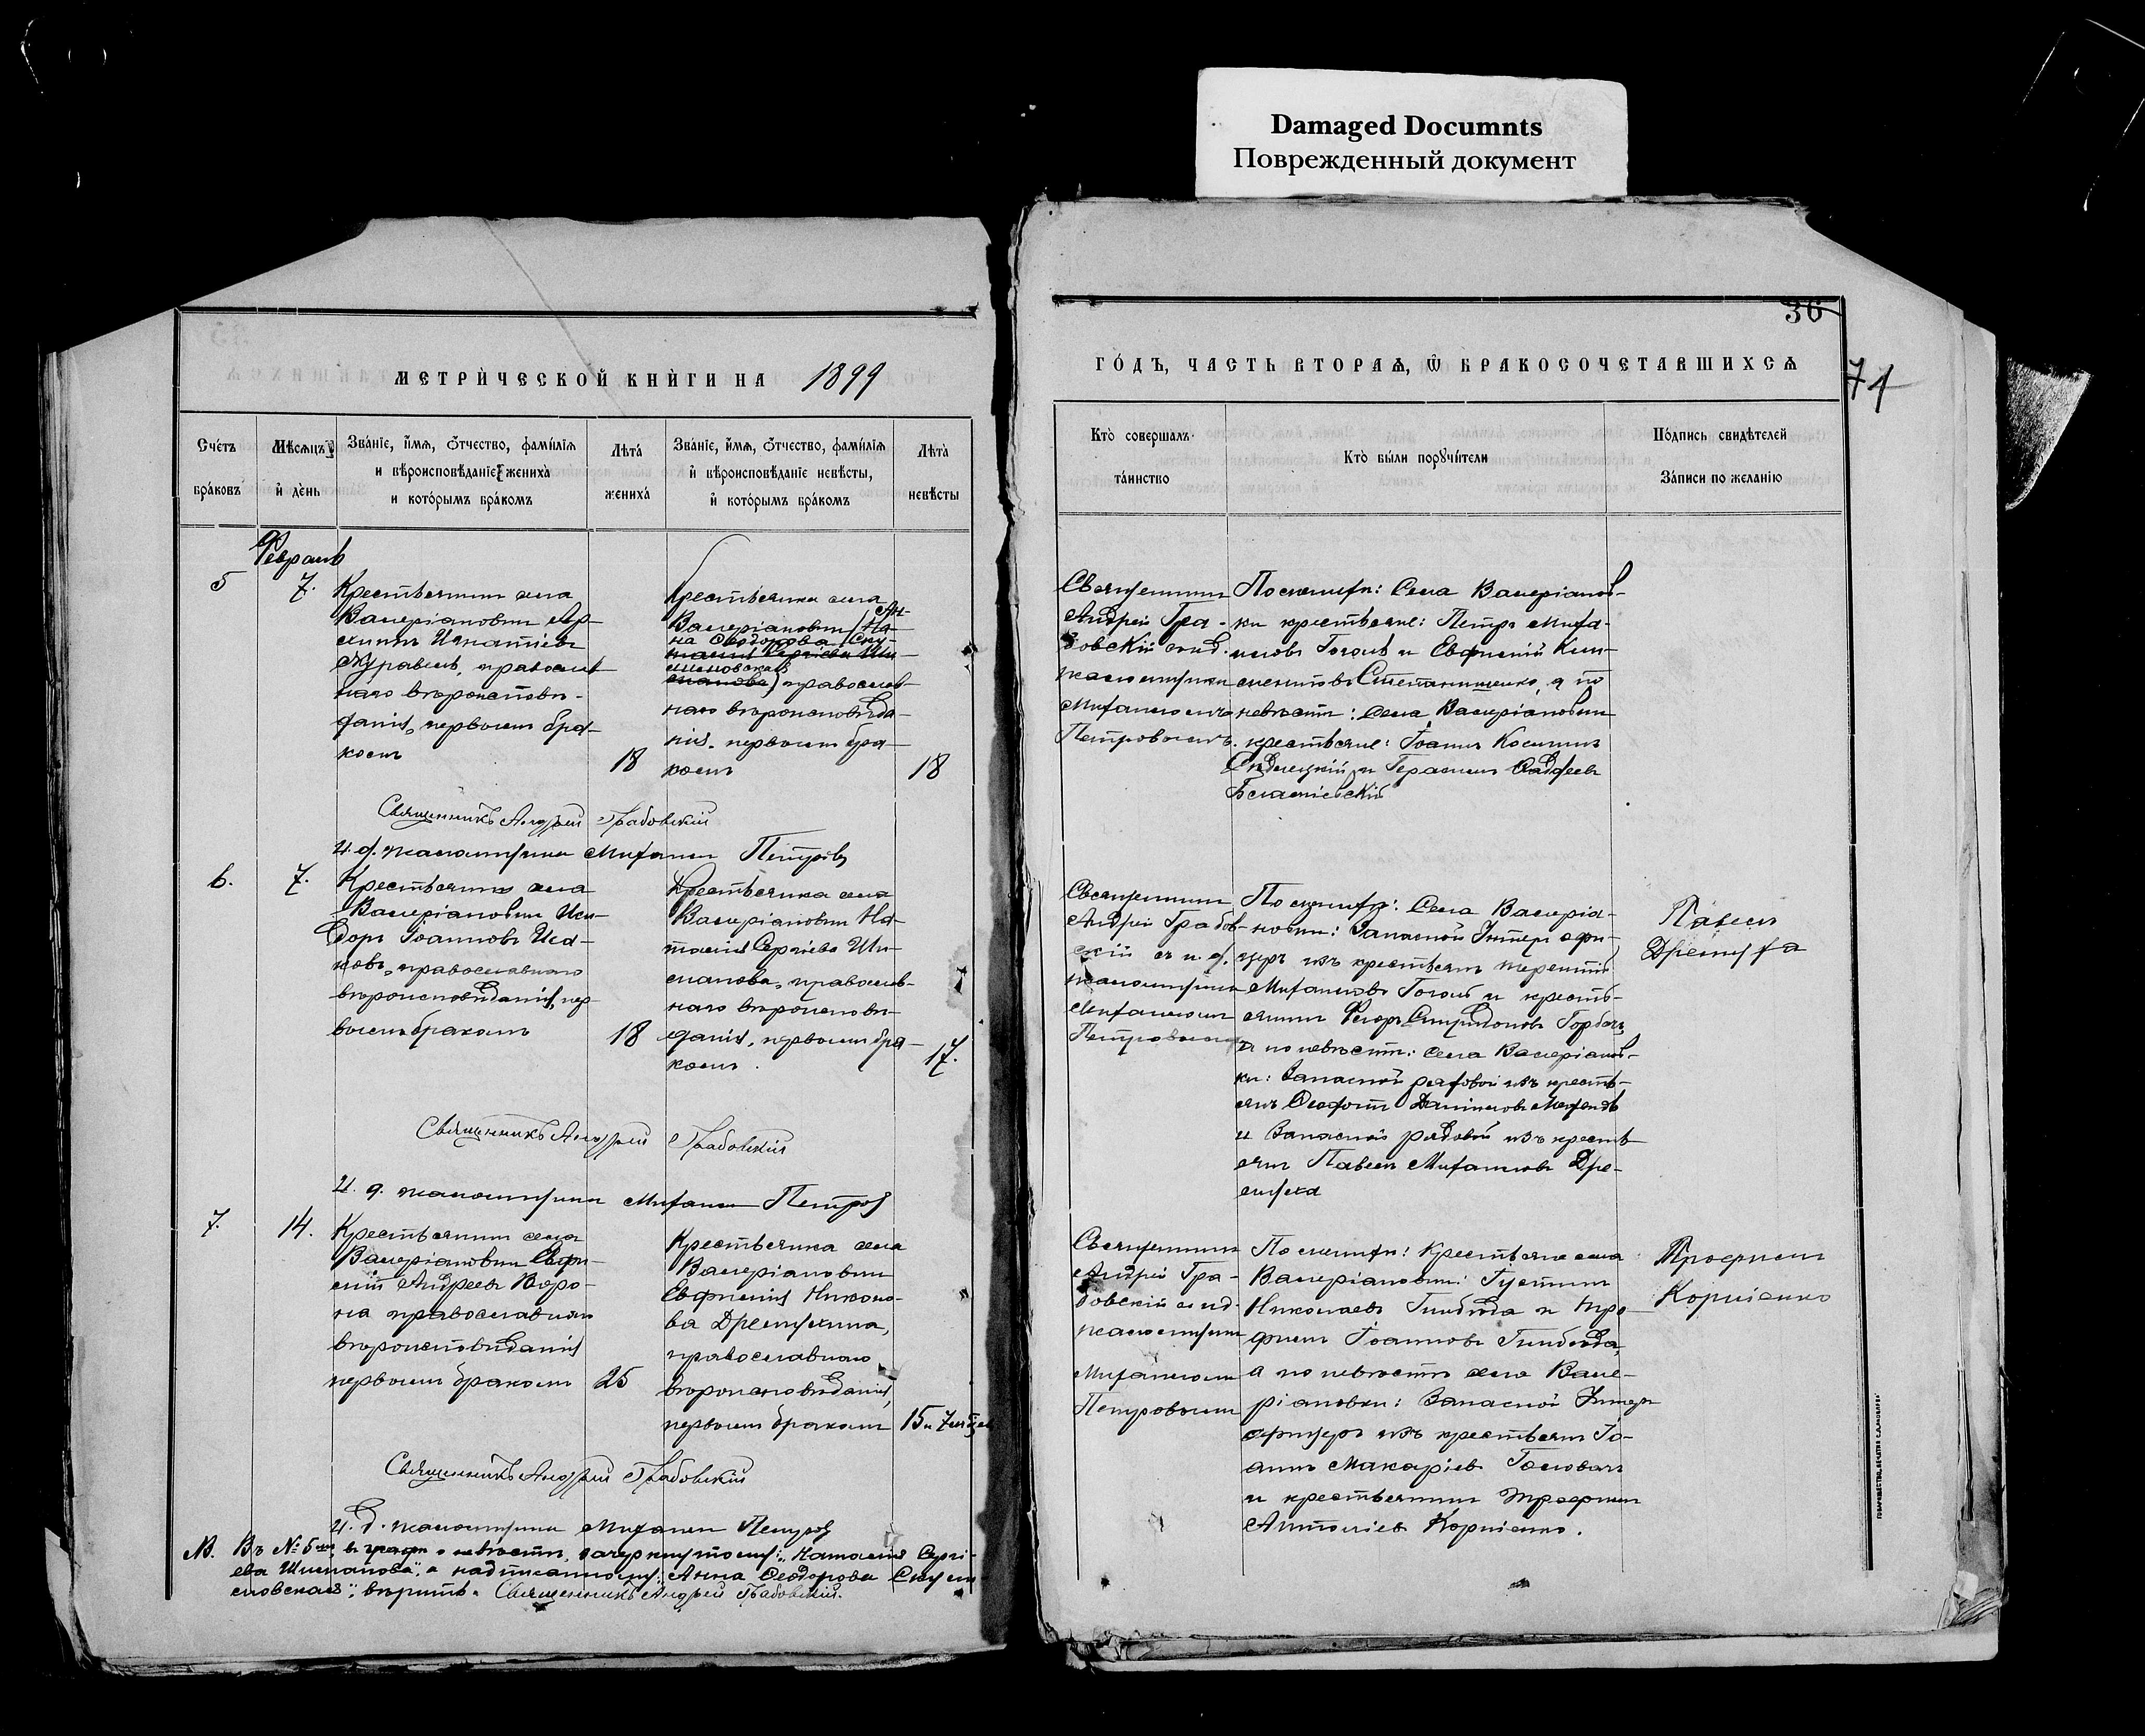 Damaged Documnts
Поврежденный документ
МЕТРИ́ЧЕСКОЙ КНИ́ГИ НА 1899
Сче́тъ бра́ковъ
Мѣсяцъ и҆ де́нь
Зва́нїе, и҆́мѧ, ѻ҆́тчество, фами́лїѧ и вѣроисповѣ́данїе жениха̀ и кото́рымъ бра́комъ
Лѣта̀ жениха̀
Зва́нїе, и҆́мѧ, ѻ҆́тчество, фами́лїѧ и҆ вѣроисповѣ́данїе невѣ́сты, и҆ кото́рымъ бра́комъ
Лѣта̀ невѣ́сты
Февраль
5
7.
Крестьянинъ села
Валеріановки
Игнатіевъ
Журавель, православ
наго вѣроисповѣ-
данія, первымъ бра-
комъ
18
Крестьянка села
Валеріановки (Ан-
на Ѳеодорова
православ-
наго вѣроисповѣда-
нія, первымъ бра-
комъ
18
Священникъ Андрей Грабовскій
И. д. псаломщика Михаилъ Петровъ
6.
7.
Крестьянинъ села
Валеріановки Иси-
доръ Іоанновъ Иса-
ковъ, православнаго
вѣроисповѣданія, пер
вымъ бракомъ
18
Крестьянка села
Валеріановки На-
талія Сергіева Ши-
манова, православ-
наго вѣроисповѣ-
данія, первымъ бра-
комъ.
17.
Священникъ Андрей Грабовскій
И. д. псаломщика Михаилъ Петровъ
7.
14.
Крестьянинъ села
Валеріановки Евфи-
мій Андреевъ Воро-
на православнаго
вѣроисповѣданія
первымъ бракомъ
25
Крестьянка села
Валеріановки
Евфимія Никоно-
ва
православнаго
вѣроисповѣданія,
первымъ бракомъ
15 и 7
Священникъ Андрей Грабовскій
И. д. псаломщика Михаилъ Петровъ
NB. Въ № 5 въ графѣ о невѣстѣ, зачеркнутому: „Наталія Сергі-
ева Шиманова", а надписанному: „Анна Ѳеодорова
вѣрить. Священникъ Андрей Грабовскій.
36
71
ГО́ДЪ, ЧАСТЬ ВТОРАѦ, Ѽ БРАКОСОЧЕТАВШИХСѦ
Кто̀ соверша́лъ та́инство
Кто̀ бы́ли порꙋчи́тели
По́дпись свидѣ́телей За́писи по жела́нїю
Священникъ
Андрей Гра-
бовскій съ и. д.
псаломщика
Михаиломъ
Петровымъ.
По женихѣ: Села Валеріанов-
ки крестьяне: Петръ Миха-
иловъ Гоголь и Евфимій Кли-
ментовъ а по
невѣстѣ: села Валеріановки
крестьяне: Іоаннъ Косминъ
и Герасимъ Ѳаддеевъ
Священникъ
Андрей Грабов-
скій съ и. д.
псаломщика
Михаиломъ
Петровымъ
По женихѣ: Села Валеріа-
новки: Запасной Унтеръ офи-
церъ изъ крестьянъ Терентій
Михаиловъ Гоголь и кресть-
янинъ Ѳеодоръ Спиридоновъ Горбачъ
а по невѣстѣ: села Валеріанов-
ки: Запасной рядовой изъ кресть-
янъ
и Запасной рядовой изъ кресть
янъ Павелъ Михаиловъ
Павелъ
Священникъ
Андрей Гра-
бовскій съ и. д.
псаломщика
Михаиломъ
Петровымъ
По женихѣ: Крестьяне села
Валеріановки: Іустинъ
Николаевъ и Тро
фимъ Іоанновъ
а по невѣстѣ села Вале-
ріановки: Запасной Унтеръ
офицеръ изъ крестьянъ Іо-
аннъ Макаріевъ Головачъ
и крестьянинъ Трофимъ
Антоніевъ Корніенко.
Трофимъ
Корніенко